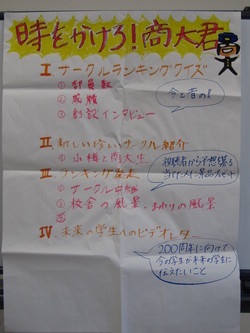 時をかけろ!商大君
I サークルランキングクイズ
① 部員数
② 成績
③ 創設インタビュー
今と昔の!
II 新しい珍しいサークル紹介
① 小樽と商大生
視聴者から予想募る
III ランキング発表
① サークル
② 校舎の風景、まわりの風景
③
IV 未来の学生へのビデオレター
200周年に向けて
今の学生が未来の学生に
伝えたいこと